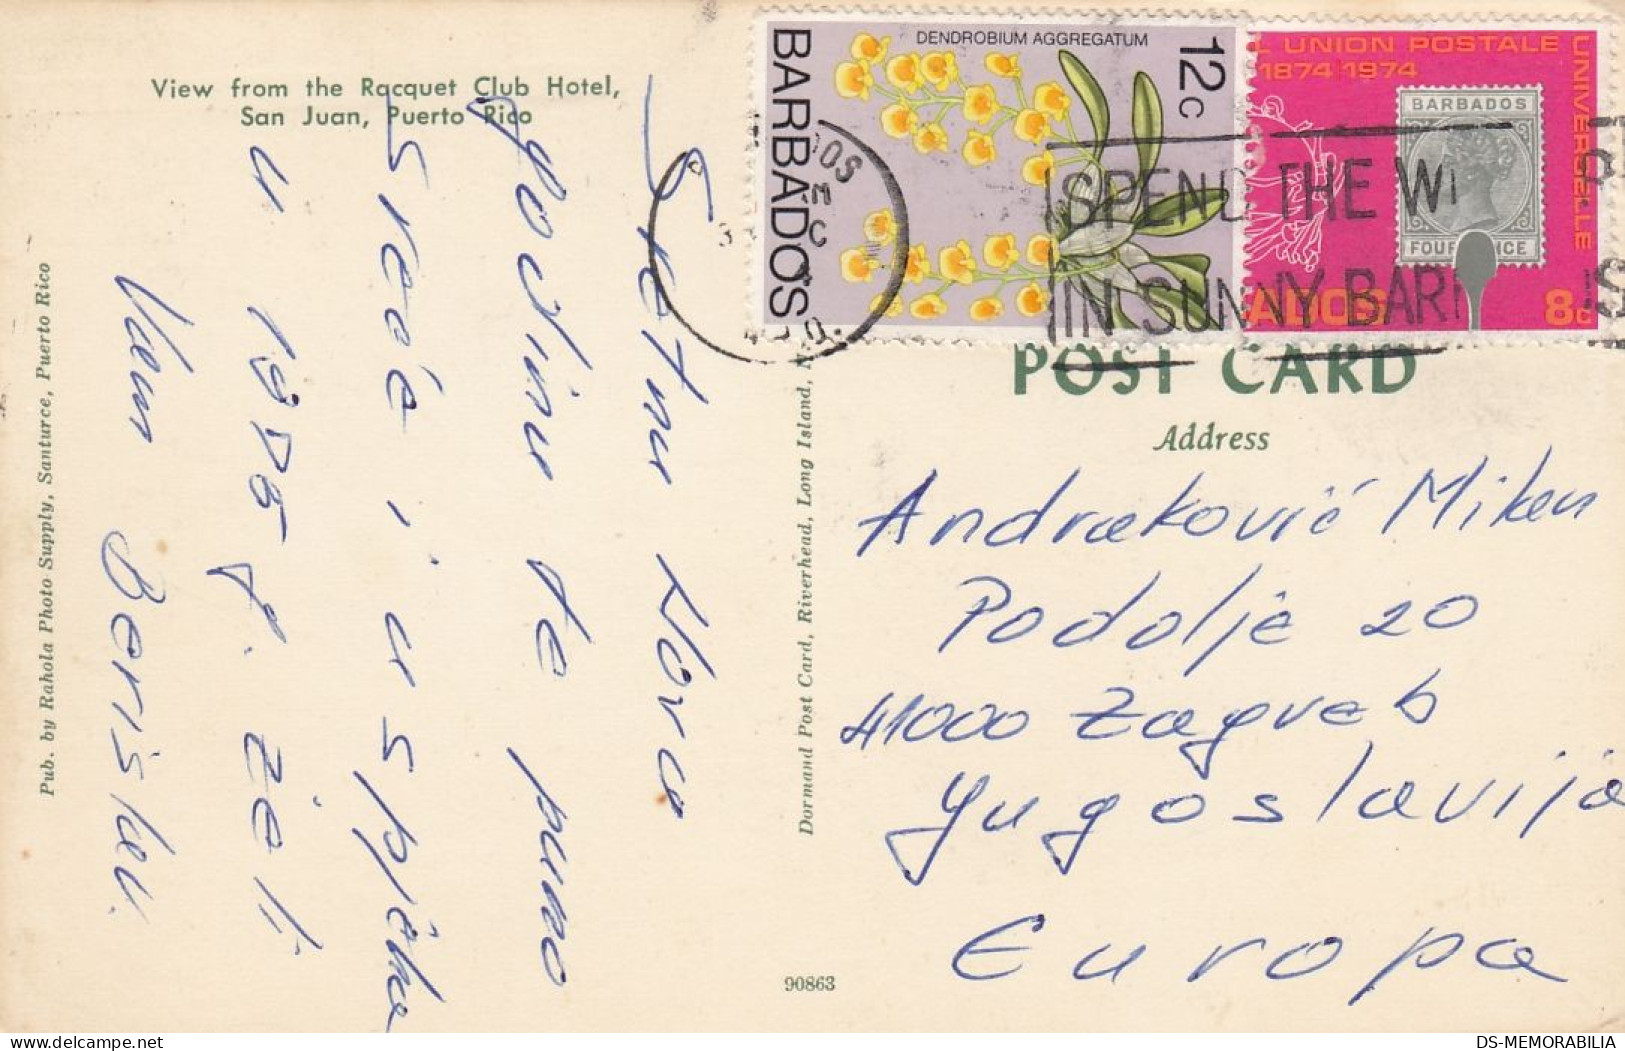 View from the Racquet Club Hotel,
San Juan, Puerto Rico
Pub. by Rahola Photo Supply, Santurce, Puerto Rico
Sretnu Novu
godinu te puno
sreće i uspjeha
u 1975 g. želi
Vam Berislav.
Dormand Post Card, Riverhead, Long Island, N
90863
DENDROBIUM AGGREGATUM
12c
BARBADOS
L UNION POSTALE
UNIVERSELLE
1874 1974
BARBADOS
FOUR PENCE
ADOS
8c
DOS
SPEND THE WI
IN SUNNY BAR
POST CARD
Address
Andraković Milan
Podolje 20
41000 Zagreb
Yugoslavija
Europa
DS-MEMORABILIA
delcampe.net